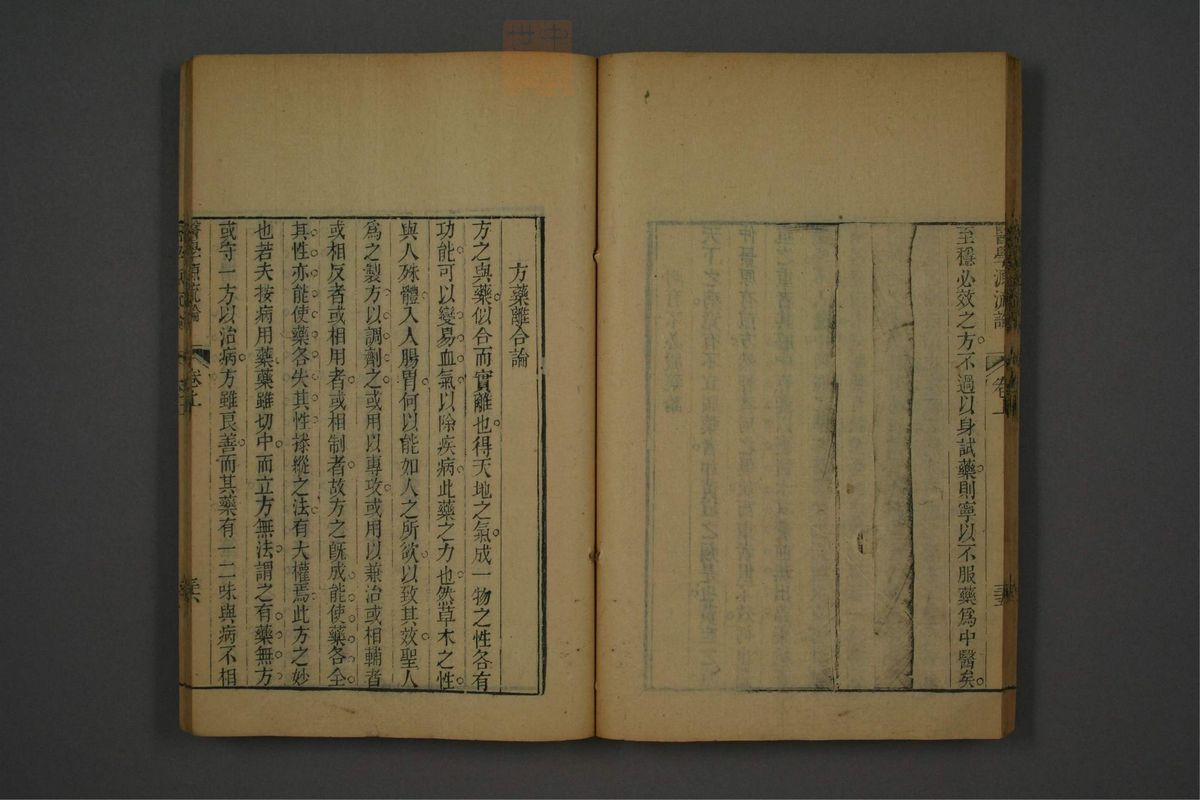 醫學源流論 卷上
至穩必效之方不過以身試藥則寧以不服藥爲中醫矣
方藥離合論
方之與藥似合而實離也得天地之氣成一物之性各有
功能可以變易血氣以除疾病此藥之力也然草木之性
與人殊體入人腸胃何以能如人之所欲以致其效聖人
爲之製方以調劑之或用以專攻或用以兼治或相輔者
或相反者或相用者或相制者故方之旣成能使藥各全
其性亦能使藥各失其性操縱之法有大權焉此方之妙
也若夫按病用藥藥雖切中而立方無法謂之有藥無方
或守一方以治病方雖良善而其藥有一二味與病不相
醫學源流論 卷上